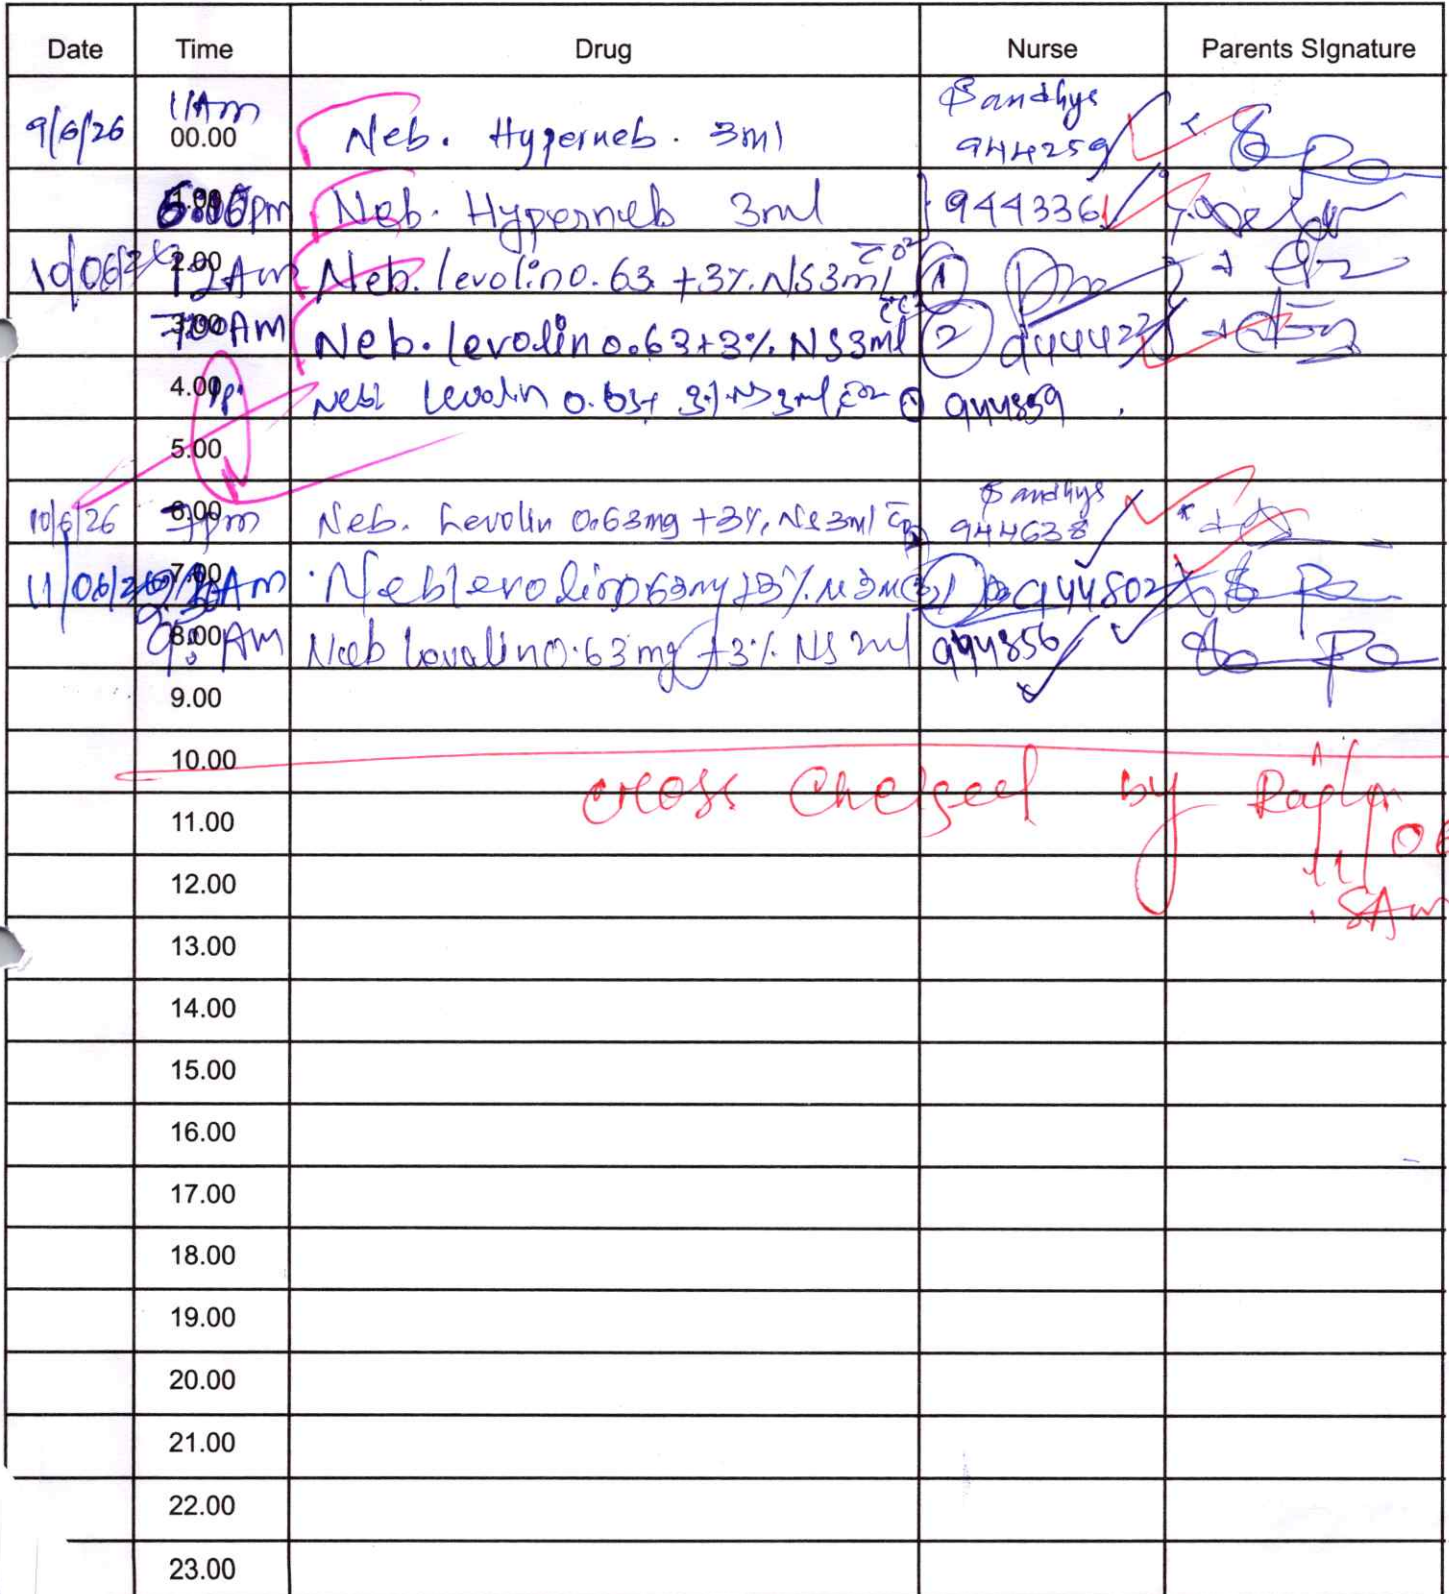 Date Time Drug Nurse Parents SIgnature
9/6/26 11Am 00.00 Neb. Hyperneb. 3ml Sandhys 944259
pm Neb. Hyperneb 3ml 944336
10/06/26 2.00 12Am Neb. levolin 0.63 + 3% NS 3ml c̄ O2 1
3.00 7:00AM Neb. levolin 0.63+3% NS 3ml 2 944423
4.00 Neb levolin 0.63+ 3% NS 3ml c̄ O2 1 944859
5.00
10/6/26 6.00 7pm Neb. Levolin 0.63mg +3%. NS 3ml Sandhys 944638
11/06/26 7.00 Am Neb levolin 0.63mg +3% N 3ml 944802
8.00 Am Neb Levalin 0.63mg +3% NS 944856
9.00
10.00
cross Checked by
11.00
11/06
12.00
8Am
13.00
14.00
15.00
16.00
17.00
18.00
19.00
20.00
21.00
22.00
23.00